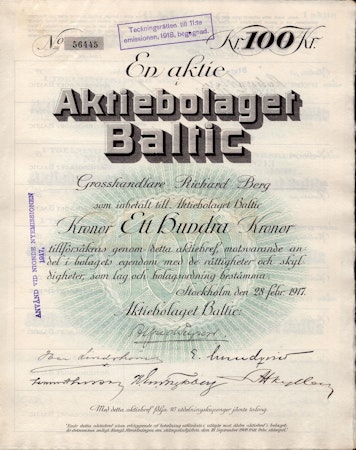 No 56445
Teckningsrätten till 11:te
emissionen, 1918, begagnad.
Kr 100 Kr.
En aktie
Aktiebolaget
Baltic
Grosshandlare Richard Berg
som inbetalt till Aktiebolaget Baltic
Kronor Ett Hundra Kronor
tillförsäkras genom detta aktiebref motsvarande an-
del i bolagets egendom med de rättigheter och skyl-
digheter, som lag och bolagsordning bestämma.
Stockholm den 28 febr. 1917.
Aktiebolaget Baltic:
ANVÄND VID NIONDE NYEMISSIONEN
1917.
E. Lundqvist
Med detta aktiebref följa 10 utdelningskuponger jämte talong.